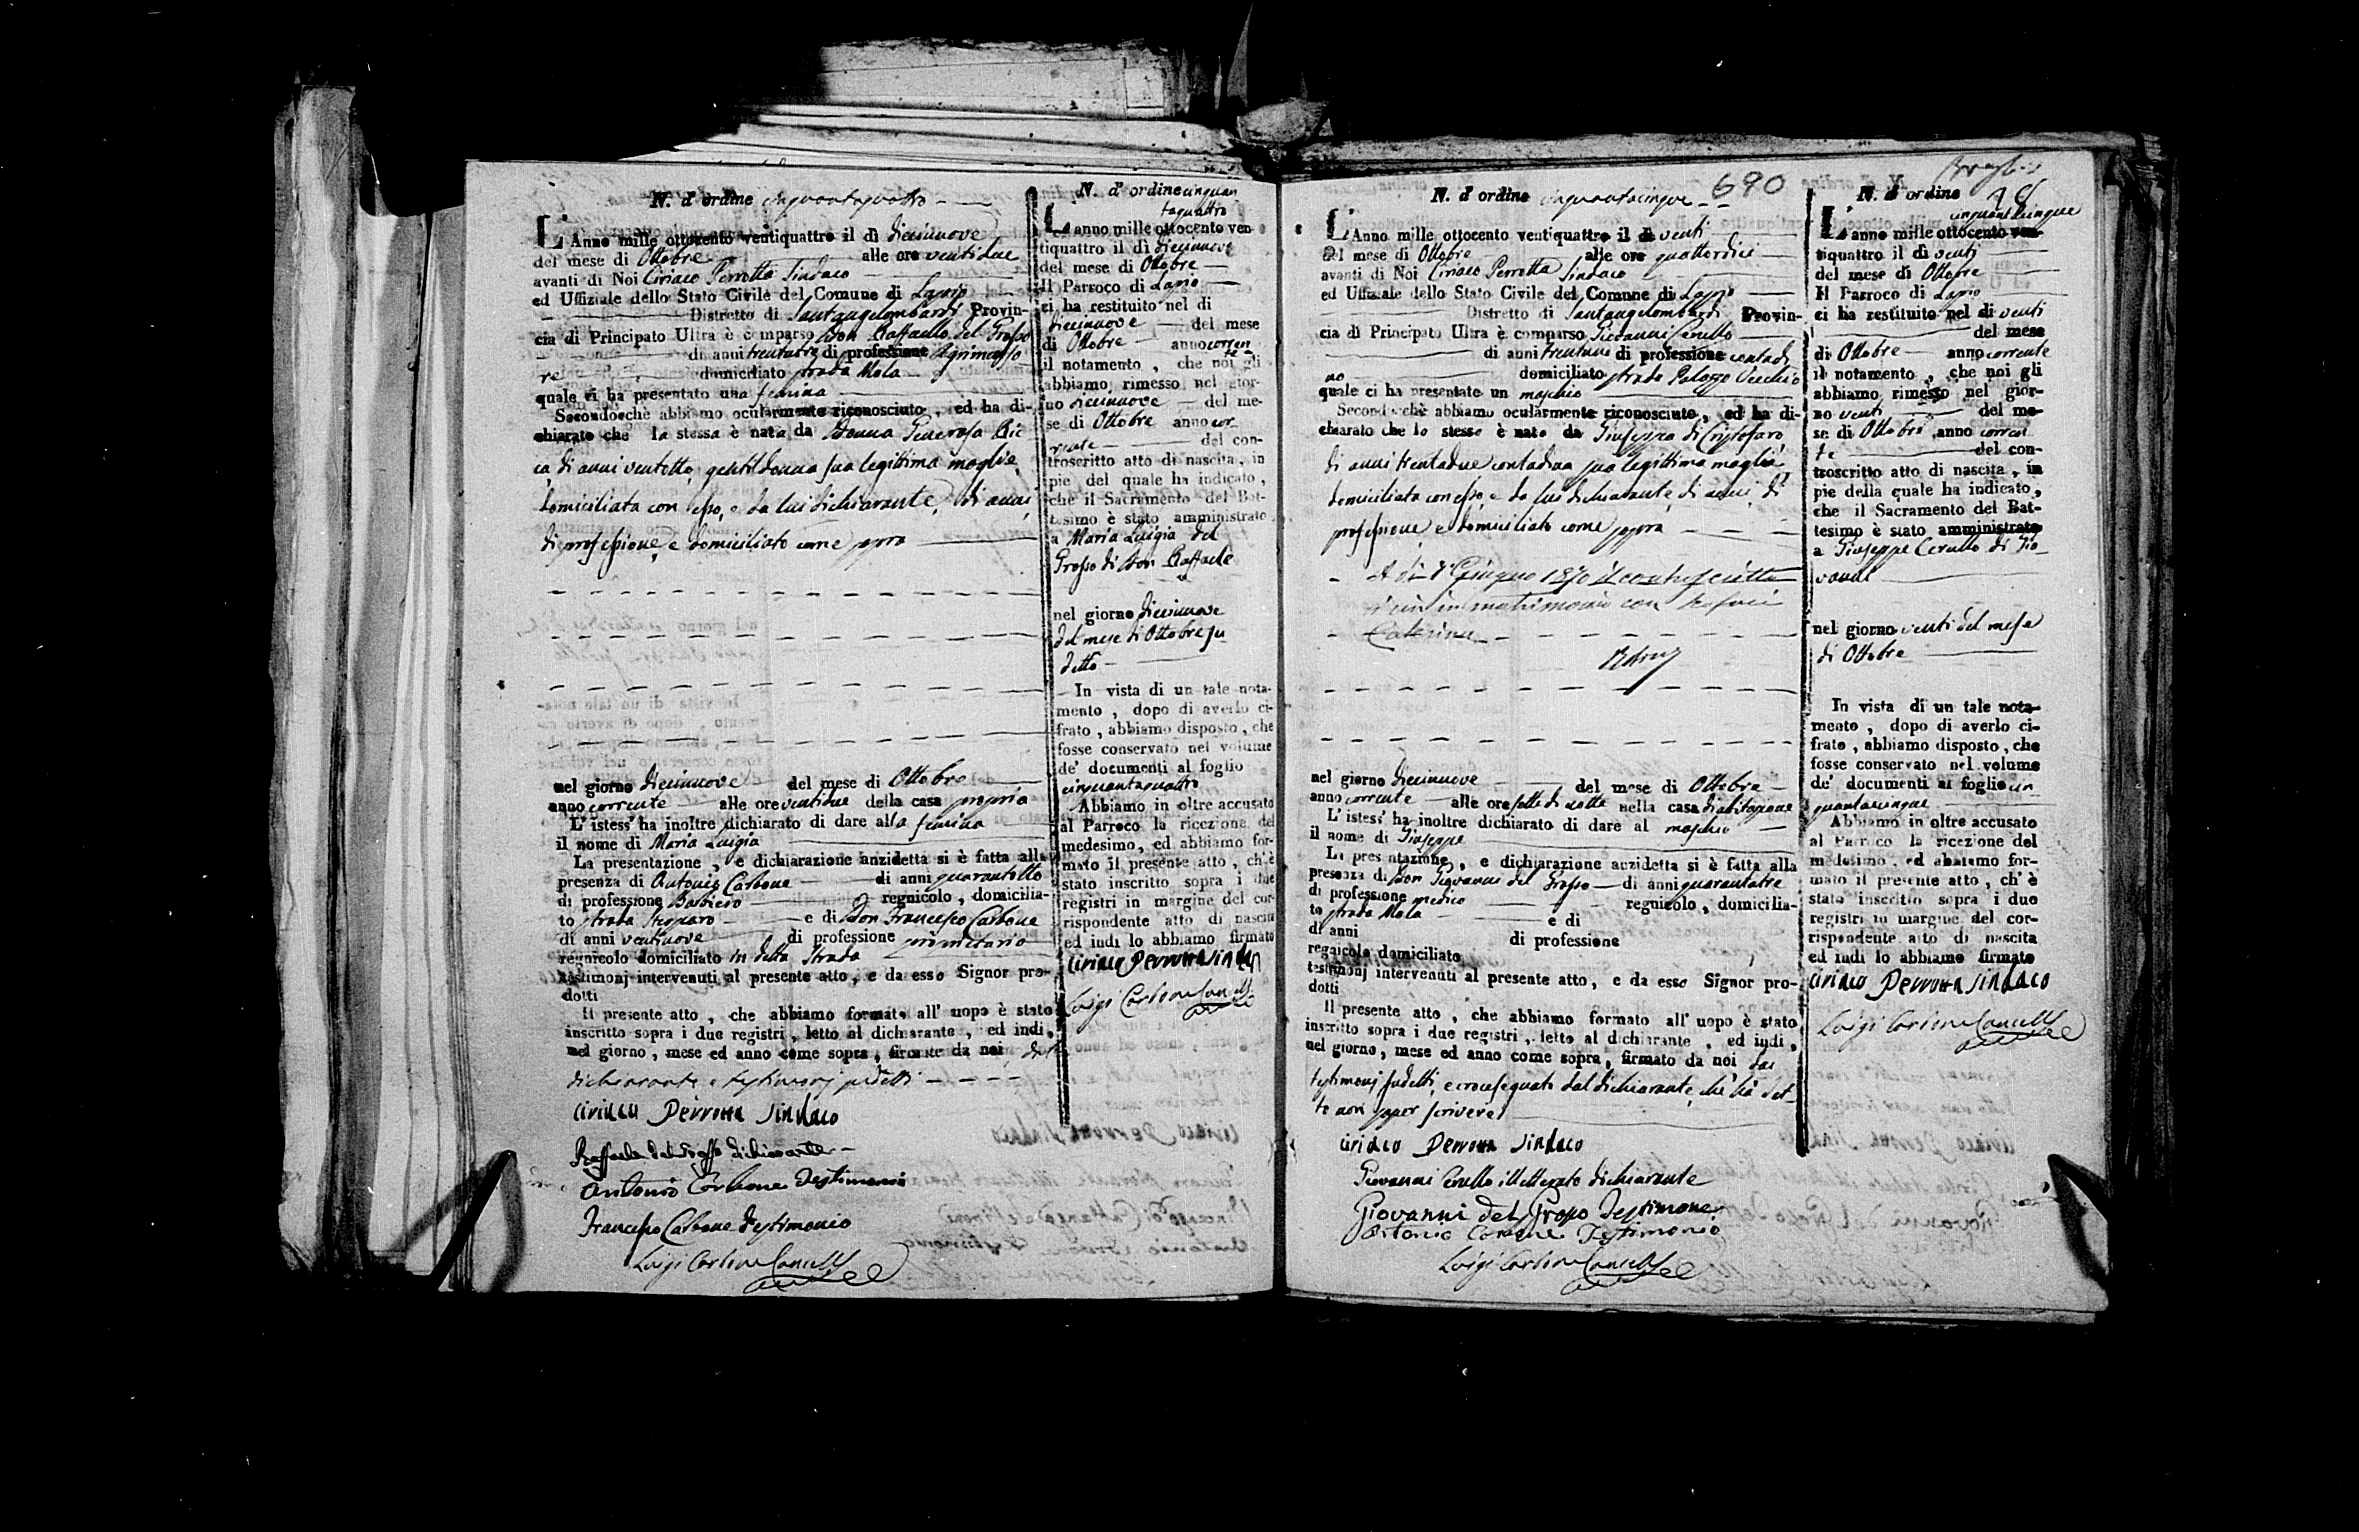 N. d' ordine cinquantaquattro
L'Anno mille ottocento ventiquattro il dì diecinnove
del mese di Ottobre alle ore ventidue
avanti di Noi Ciriaco Perrotta Sindaco
ed Uffiziale dello Stato Civile del Comune di Lapio
Distretto di Santangelombardi Provin-
cia di Principato Ultra è comparso Don Raffaello del Grosso
di anni trentatre di professione Agrimenso
re domiciliato strada Mola
quale ci ha presentato una femina
Secondochè abbiamo ocularmente riconosciuto, ed ha di-
chiarato che la stessa è nata da Donna Generosa
di anni ventotto, gentildonna sua legittima moglie
domiciliata con esso, e da lui dichiarante, di anni,
di professione, e domiciliato come sopra
nel giorno diecinnove del mese di Ottobre
anno corrente alle ore ventidue della casa propria
L' istess' ha inoltre dichiarato di dare alla femina
il nome di Maria Luigia
La presentazione, e dichiarazione anzidetta si è fatta alla
presenza di Antonio Carbone di anni quarantotto
di professione Barbiero regnicolo, domicilia-
to strada e di Don Francesco Carbone
di anni ventinove di professione proprietario
regnicolo domiciliato in detta strada
testimonj intervenuti al presente atto, e da esso Signor pro-
dotti
Il presente atto, che abbiamo formato all' uopo è stato
inscritto sopra i due registri, letto al dichiarante, ed indi,
nel giorno, mese ed anno come sopra, firmato da noi dal
dichiarante e testimonj sudetti
Ciriaco Perrotta Sindaco
Raffaele del Grosso dichiarante
Antonio Carbone Testimonio
Francesco Carbone Testimonio
Luigi Carbone Cancell.
N. d' ordine cinquan
taquattro
L'anno mille ottocento ven
tiquattro il dì diecinnove
del mese di Ottobre
Il Parroco di Lapio
ci ha restituito nel di
diecinnove del mese
di Ottobre anno corren
te
il notamento, che noi gli
abbiamo rimesso nel gior-
no diecinnove del me-
se di Ottobre anno cor
rente del con-
troscritto atto di nascita, in
pie del quale ha indicato,
che il Sacramento del Bat-
tesimo è stato amministrato
a Maria Luigia del
Grosso di Don Raffaele
nel giorno diecinnove
del mese di Ottobre su
detto
In vista di un tale nota-
mento, dopo di averlo ci-
frato, abbiamo disposto, che
fosse conservato nel volume
de' documenti al foglio
cinquantaquattro
Abbiamo in oltre accusato
al Parroco la ricezione del
medesimo, ed abbiamo for-
mato il presente atto, ch' è
stato inscritto sopra i due
registri in margine del cor-
rispondente atto di nascita
ed indi lo abbiamo firmato
Ciriaco Perrotta Sindaco
Luigi Carbone Cancell.
690
N. d' ordine cinquantacinque
L'Anno mille ottocento ventiquattro il dì venti
del mese di Ottobre alle ore quattordici
avanti di Noi Ciriaco Perrotta Sindaco
ed Uffiziale dello Stato Civile del Comune di Lapio
Distretto di Santangelombardi Provin-
cia di Principato Ultra è comparso Giovanni Cerullo
di anni di professione contadi
no domiciliato strada Palazzo Vecchio
quale ci ha presentato un maschio
Secondochè abbiamo ocularmente riconosciuto, ed ha di-
chiarato che lo stesso è nato da Giuseppa di Cristofaro
di anni trentadue contadina sua legittima moglie
domiciliata con esso, e da lui dichiarante, di anni, di
professione e domiciliato come sopra
A dì Giugno 1870 il controscritto
s'unì in matrimonio con
Caterina
nel giorno diecinnove del mese di Ottobre
anno corrente alle ore sette di notte nella casa d'abitazione
L' istess' ha inoltre dichiarato di dare al maschio
il nome di Giuseppe
La presentazione, e dichiarazione anzidetta si è fatta alla
presenza di Don Giovanni del Grosso di anni quarantatre
di professione medico regnicolo, domicilia-
to strada Mola e di
di anni di professione
regnicolo domiciliato
testimonj intervenuti al presente atto, e da esso Signor pro-
dotti
Il presente atto, che abbiamo formato all' uopo è stato
inscritto sopra i due registri, letto al dichiarante, ed indi,
nel giorno, mese ed anno come sopra, firmato da noi dai
testimonj sudetti, e crocesegnato dal dichiarante, chè ha det-
to non saper scrivere
Ciriaco Perrotta Sindaco
Giovanni Cerullo illetterato dichiarante
Giovanni del Grosso Testimone
Antonio Carbone Testimonio
Luigi Carbone Cancell.
N. d' ordine
cinquantacinque
L'anno mille ottocento ven-
tiquattro il dì venti
del mese di Ottobre
Il Parroco di Lapio
ci ha restituito nel di venti
del mese
di Ottobre anno corrente
il notamento, che noi gli
abbiamo rimesso nel gior-
no venti del me-
se di Ottobre anno corren
te del con-
troscritto atto di nascita, in
pie della quale ha indicato,
che il Sacramento del Bat-
tesimo è stato amministrato
a Giuseppe Cerullo di Gio
vanni
nel giorno venti del mese
di Ottobre
In vista di un tale nota-
mento, dopo di averlo ci-
frato, abbiamo disposto, che
fosse conservato nel volume
de' documenti al foglio cin
quantacinque
Abbiamo in oltre accusato
al Parroco la ricezione del
medesimo, ed abbiamo for-
mato il presente atto, ch' è
stato inscritto sopra i due
registri in margine del cor-
rispondente atto di nascita
ed indi lo abbiamo firmato
Ciriaco Perrotta Sindaco
Luigi Carbone Cancell.